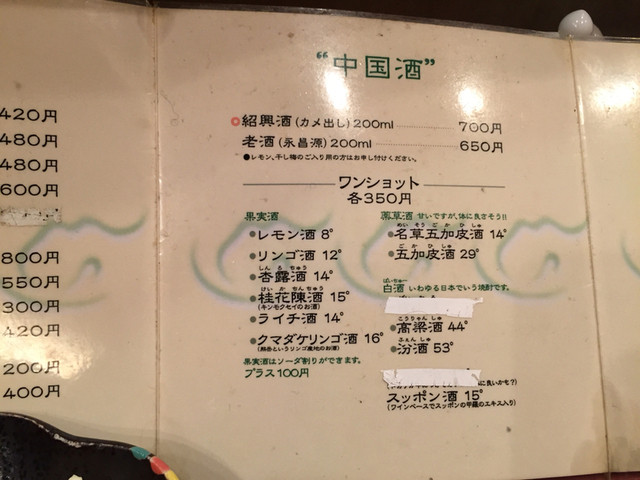 420円
480円
480円
600円
800円
550円
300円
420円
200円
400円
“中国酒”
紹興酒(カメ出し)200ml 700円
老酒(永昌源)200ml 650円
●レモン、干し梅のご入り用の方はお申し付けください。
ワンショット
各350円
果実酒
●レモン酒 8°
●リンゴ酒 12°
しんるちゅう
●杏露酒 14°
けいかちんちゅう
●桂花陳酒 15°
(キンモクセイのお酒)
●ライチ酒 14°
●クマダケリンゴ酒 16°
(熊岳というリンゴ産地のお酒)
果実酒はソーダ割りができます。
プラス100円
薬草酒 甘いですが、体に良さそう!!
めいそうごかひしゅ
●名草五加皮酒 14°
ごかひしゅ
●五加皮酒 29°
ぱいちゅー
白酒 いわゆる日本でいう焼酎です。
こうりゃんしゅ
●高梁酒 44°
ふぇんしゅ
●汾酒 53°
に良いかも?)
スッポン酒 15°
(ワインベースでスッポンの甲羅のエキス入り)